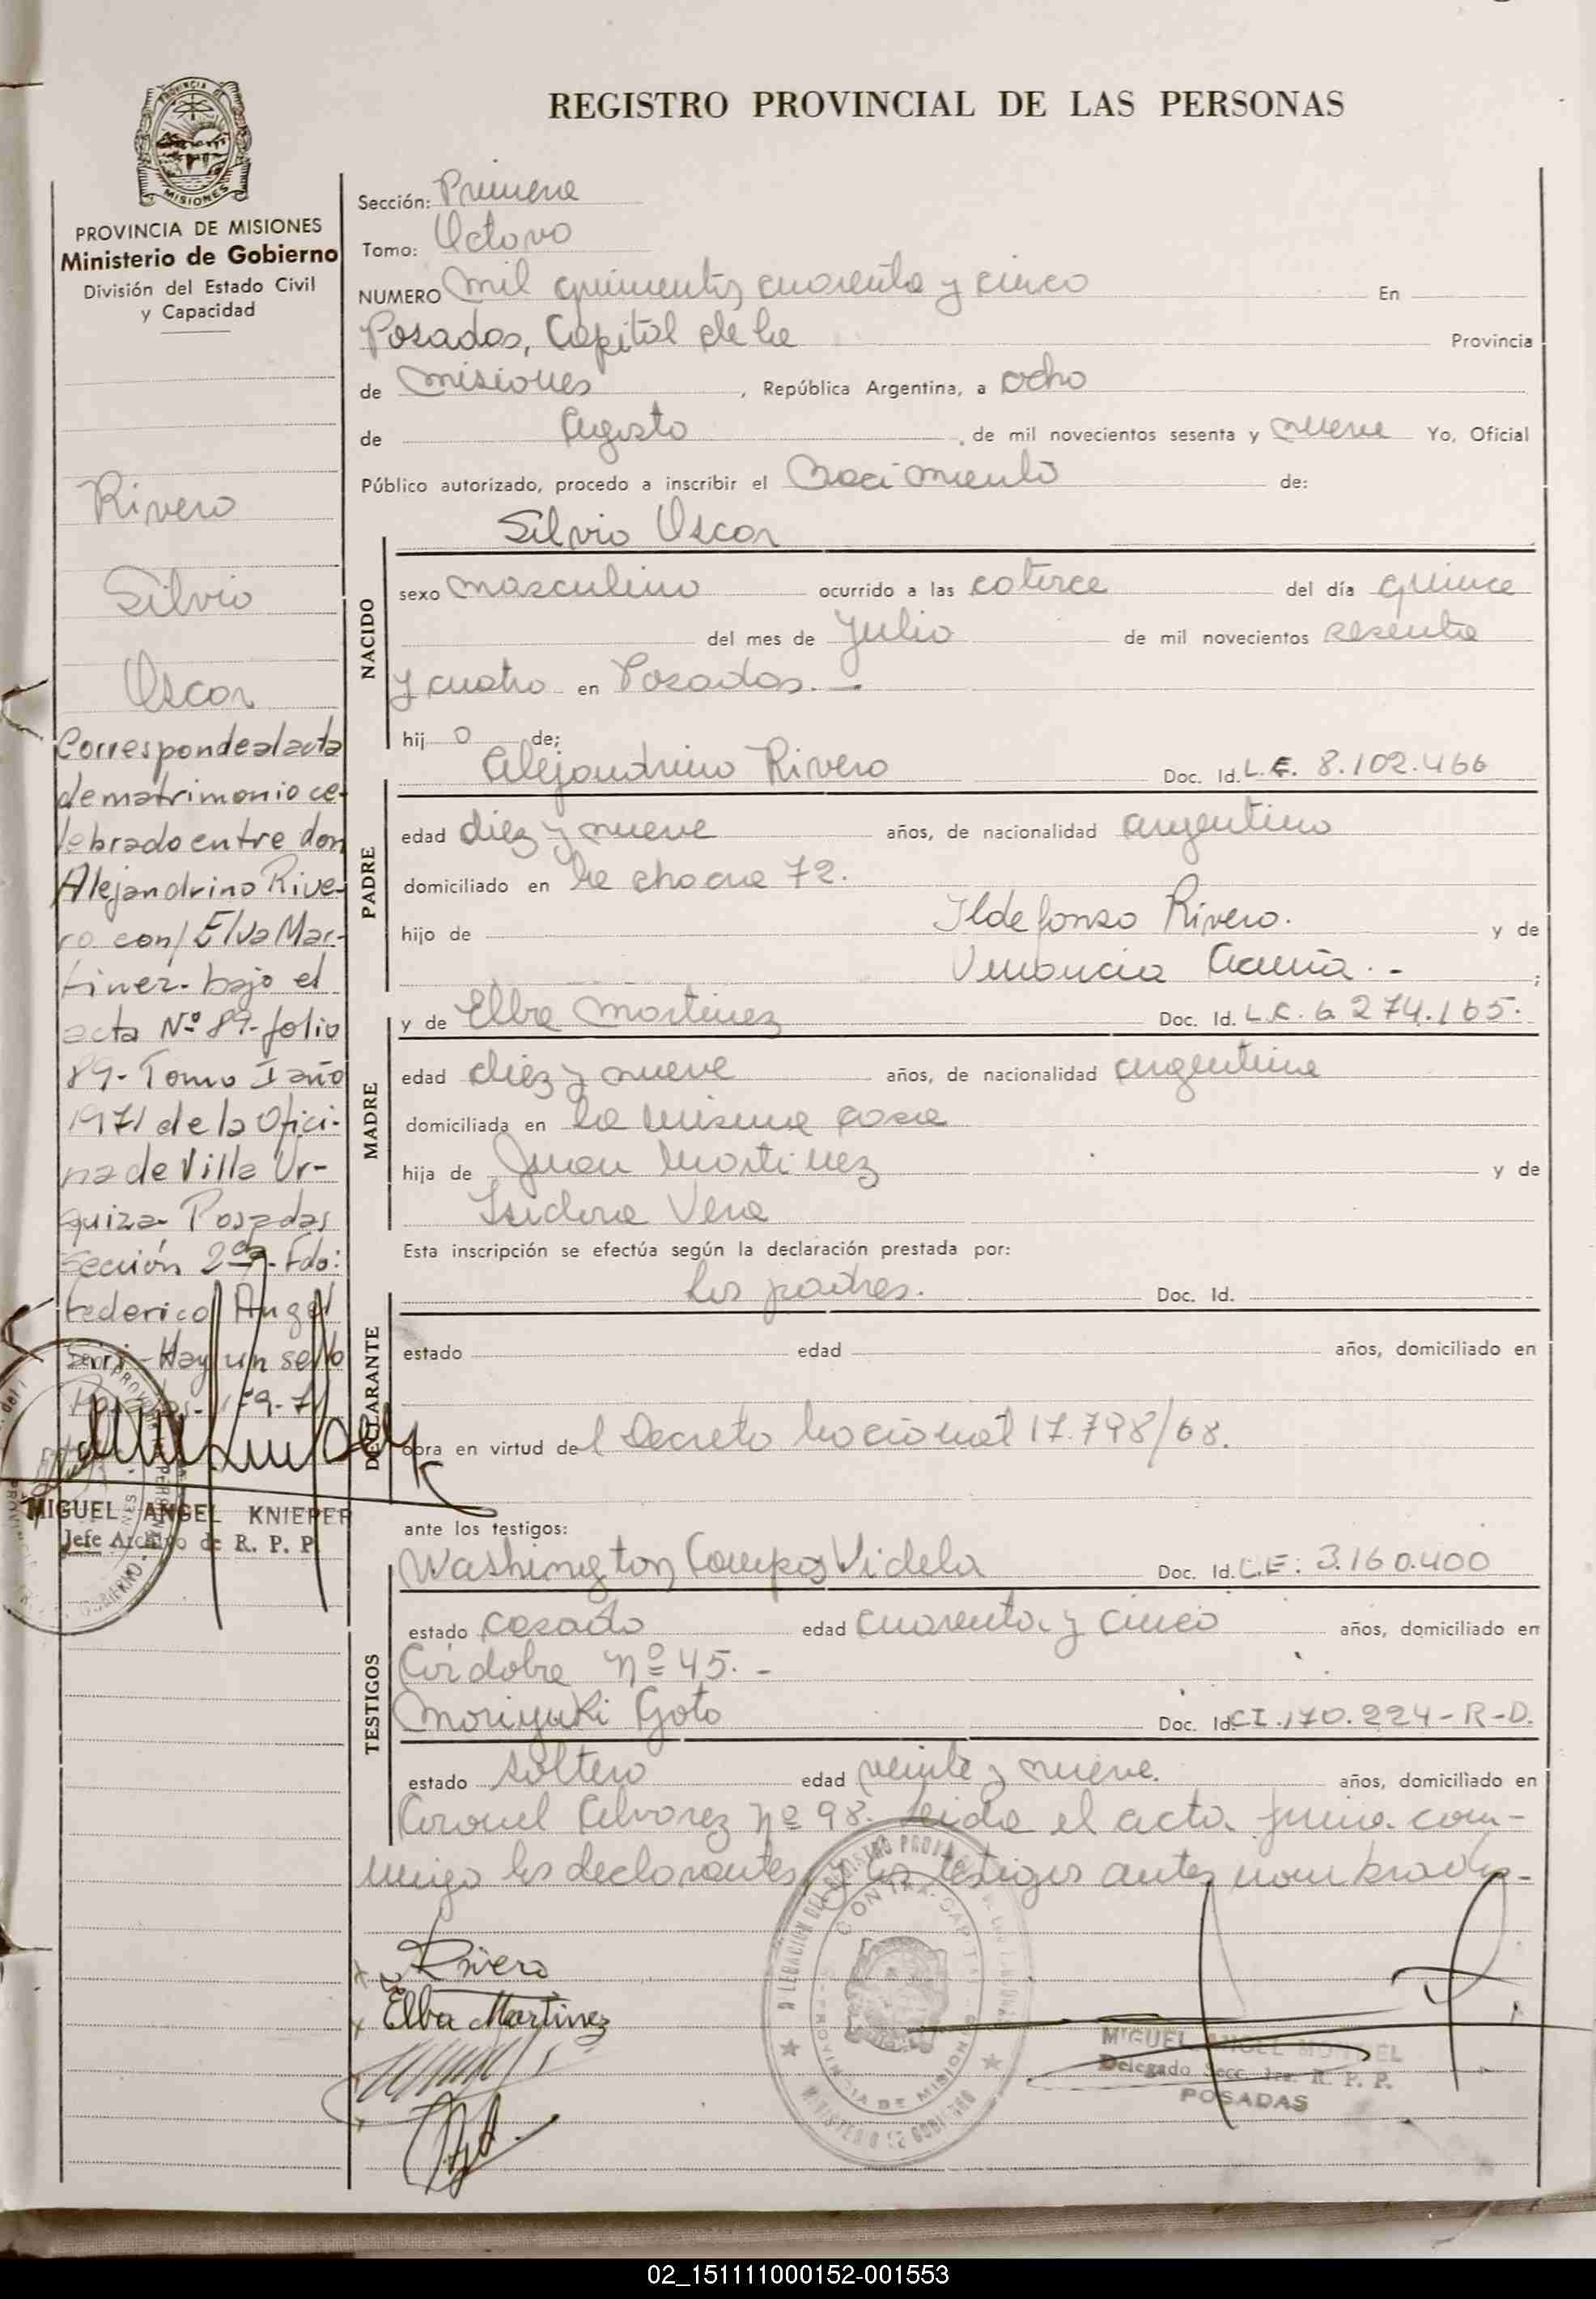 REGISTRO PROVINCIAL DE LAS PERSONAS
PROVINCIA DE MISIONES
Ministerio de Gobierno
División del Estado Civil
y Capacidad
Rivero
Silvio
Oscar
Corresponde al acta
de matrimonio ce-
lebrado entre don
Alejandrino Rive-
ro con/ Elva Mar-
tinez- bajo el
acta Nº 89- folio
89- Tomo I año
1971 de la Ofici-
na de Villa Ur-
quiza- Posadas
Sección 2da- Fdo:
Federico Angel
- Hay un sello
Posadas- 1-9-71
MIGUEL ANGEL KNIEPER
Jefe Archivo de R. P. P.
Sección: Primera
Tomo: Octavo
NUMERO mil quinientos cuarenta y cinco En
Posadas, Capital de la Provincia
de Misiones , República Argentina, a ocho
de Agosto , de mil novecientos sesenta y nueve Yo, Oficial
Público autorizado, procedo a inscribir el Nacimiento de:
Silvio Oscar
NACIDO
sexo masculino ocurrido a las catorce del día quince
del mes de Julio de mil novecientos sesenta
y cuatro en Posadas.-
hij o de;
Alejandrino Rivero Doc. Id. L.E. 8.102.466
PADRE
edad diez y nueve años, de nacionalidad argentino
domiciliado en la chacra 72.
hijo de Ildefonso Rivero. y de
Venancia Acuña.- ;
y de Elba Martinez Doc. Id. L.C. 6.274.165.
MADRE
edad diez y nueve años, de nacionalidad argentina
domiciliada en la misma casa
hija de Juan Martinez y de
Isidora Vera
Esta inscripción se efectúa según la declaración prestada por:
los padres. Doc. Id.
DECLARANTE
estado edad años, domiciliado en
obra en virtud de l Decreto Nacional 17.798/68.
ante los testigos:
Washington Campos Videla Doc. Id. L.E: 3.160.400
TESTIGOS
estado casado edad cuarenta y cinco años, domiciliado en
Córdoba nº 45.-
Moriyuki Goto Doc. Id. CI.170.224-R-D.
estado soltero edad veinte y nueve. años, domiciliado en
Coronel Alvarez nº 98. Leida el acta firma con-
migo los declarantes y los testigos antes nombrados-
Rivero
Elba Martinez
CONTRA-CAPITAL
PROVINCIA DE MISIONES
MINISTERIO DE GOBIERNO
MIGUEL ANGEL
Delegado Secc. 1ra. R. P. P.
POSADAS
02_151111000152-001553